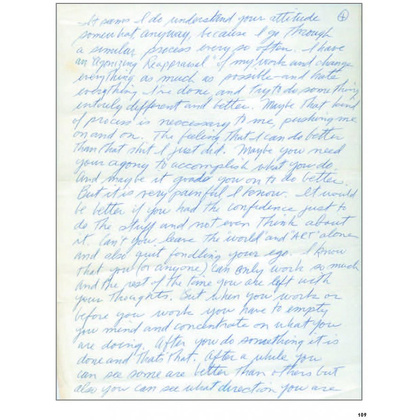 It seems I do understand your attitude 4
somewhat anyway, because I go through
a similar process every so often. I have
an agonizing Reapraisal of my work and change
everything as much as possible – and hate
everything I've done and try to do something
entirely different and better. Maybe that kind
of process is necessary to me, pushing me
on and on. The feeling that I can do better
than that shit I just did. Maybe you need
your agony to accomplish what you do.
And maybe it goads you on to do better.
But it is very painful I know. It would
be better if you had the confidence just to
do the stuff and not even think about
it. Can't you leave the world and "ART" alone
and also quit fondling your ego. I know
that you (or anyone) can only work so much
and the rest of the time you are left with
your thoughts. But when you work or
before you work you have to empty
you mind and concentrate on what you
are doing. After you do something it is
done and that's that. After a while you
can see some are better than others but
also you can see what direction you are
109